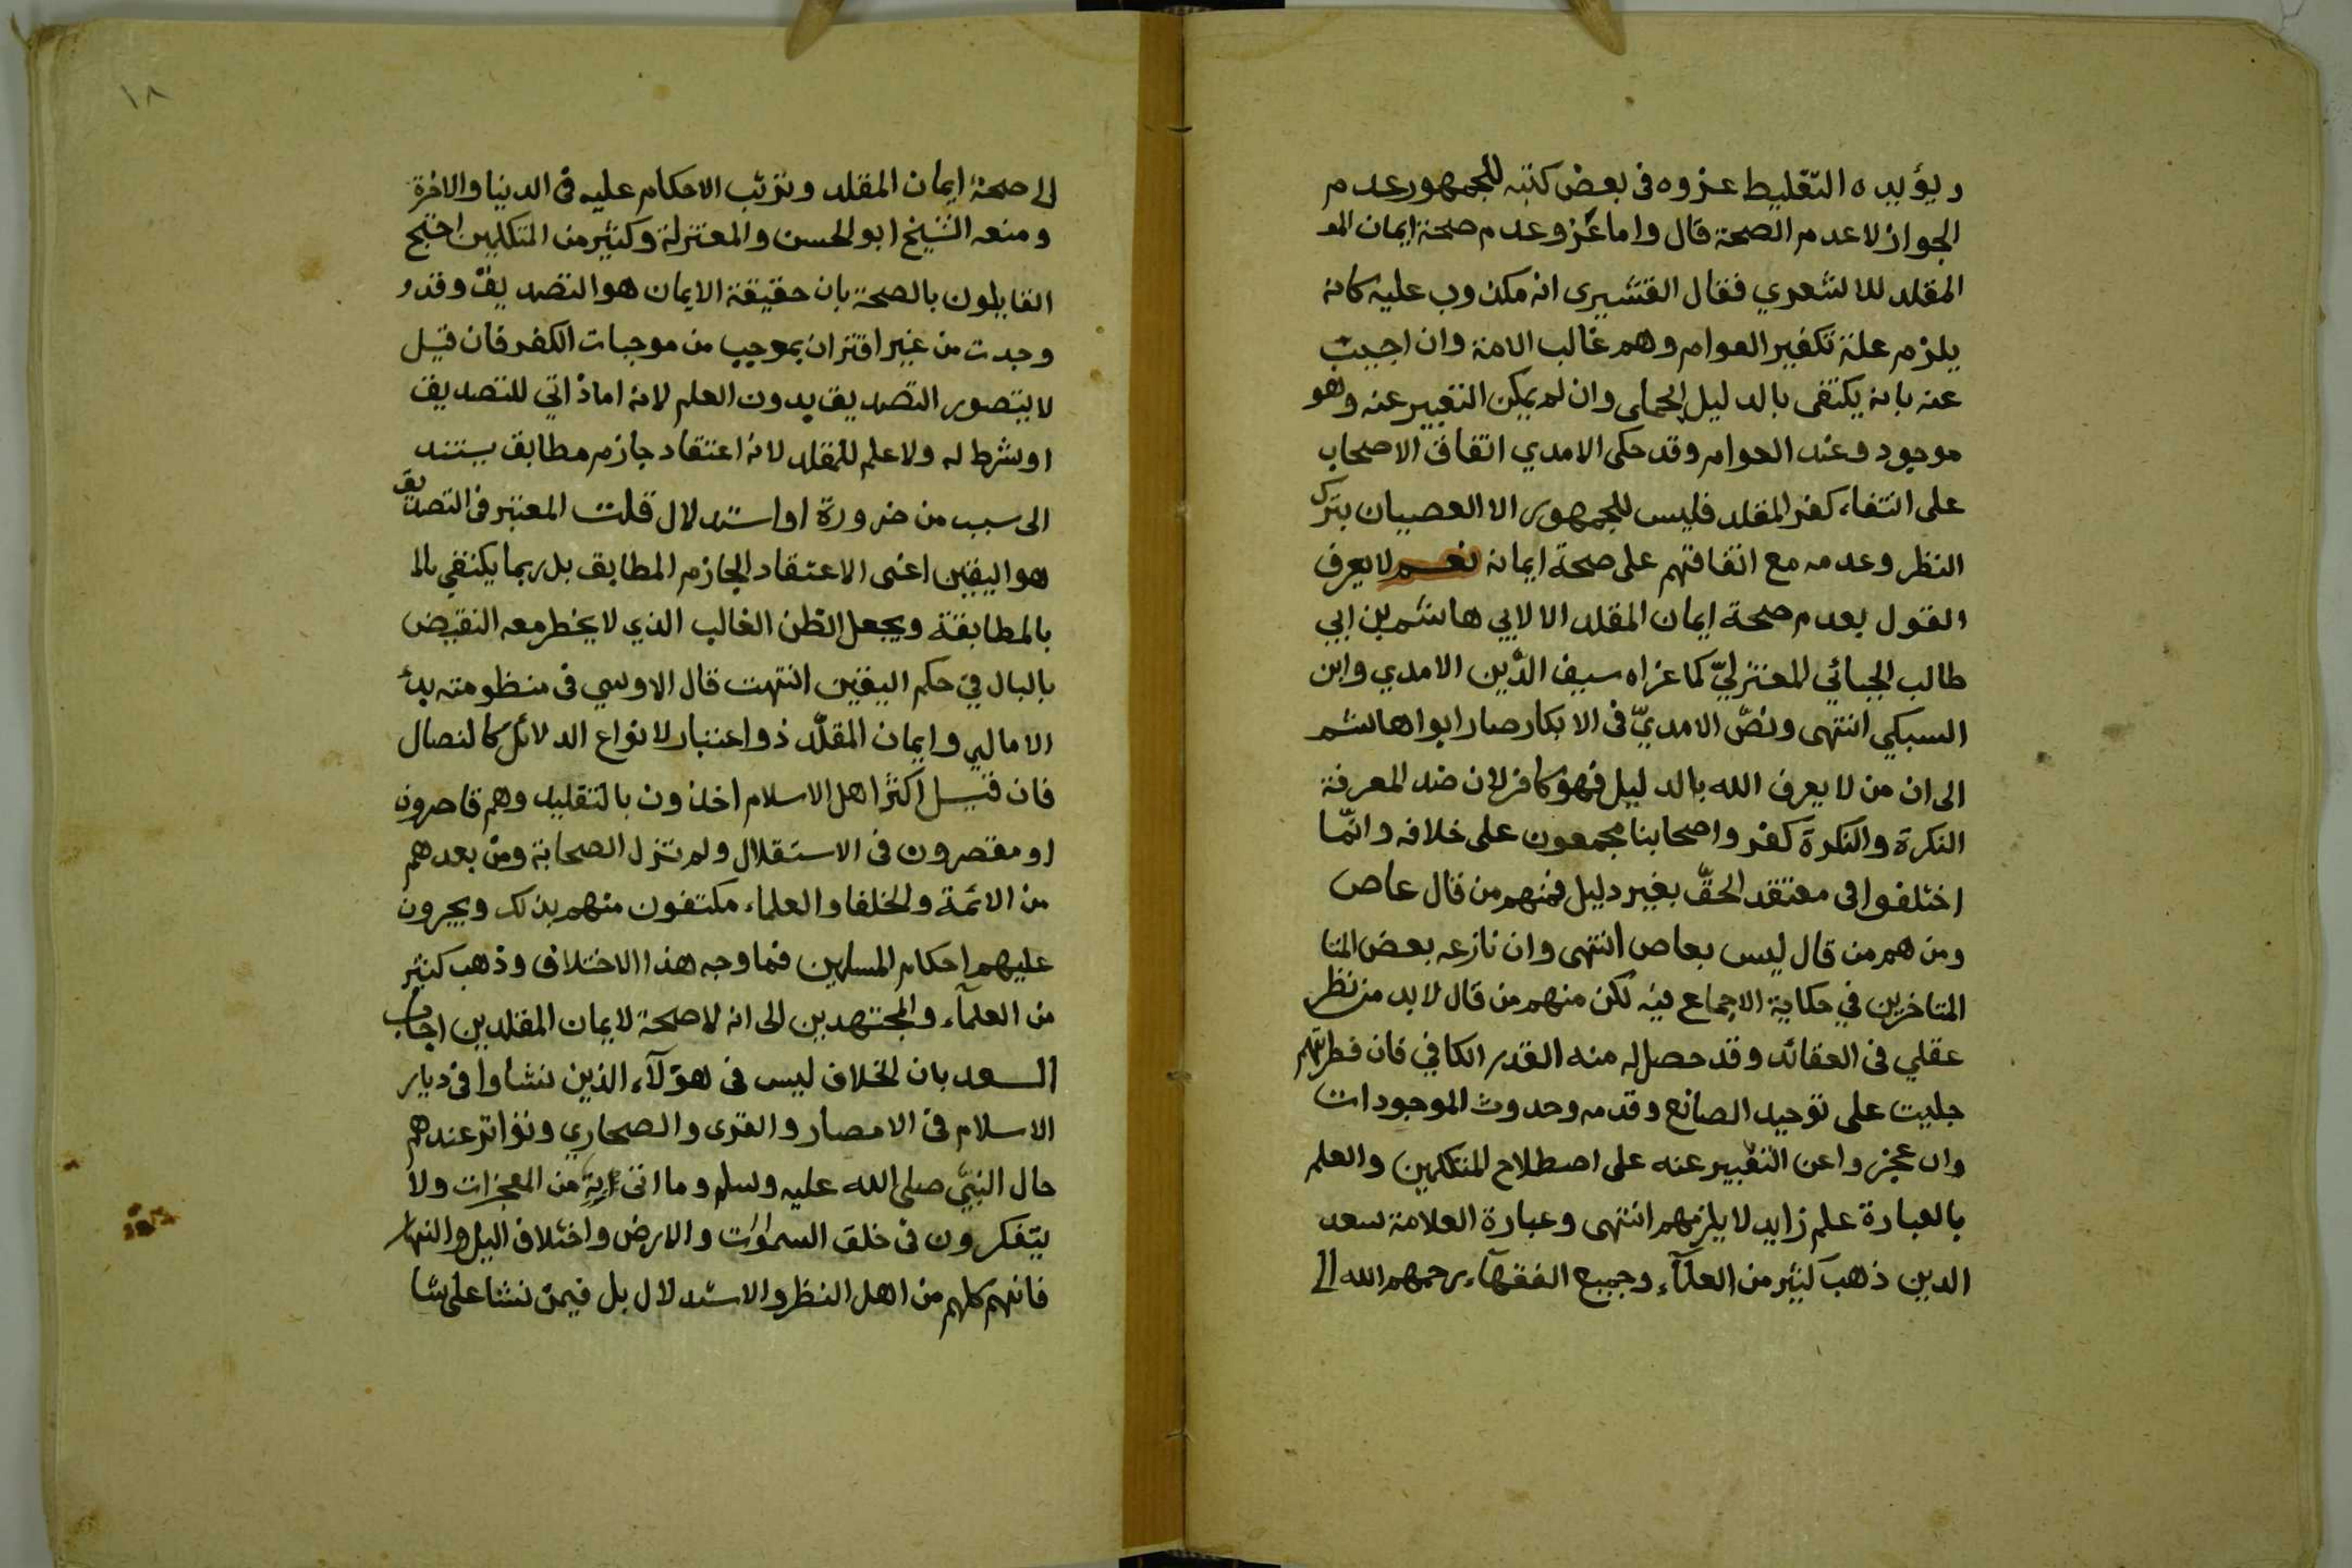 ويؤيده التغليط عزوه فى بعض كتبه للجمهور عدم
الجواز لا عدم الصحة قال واما عزو عدم صحة ايمان المو
المقلد للاشعري فقال القشيرى انه مكذوب عليه كانه
يلزم علة تكفير العوام وهم غالب الامة وان اجيب
عنه بانه يكتفى بالدليل الجملى وان لم يمكن التعبير عنه وهو
موجود وعند العوام وقد حكى الامدي اتفاق الاصحاب
على انتفاء كفر المقلد فليس للجمهور الا العصيان بترك
النظر وعدمه مع اتفاقهم على صحة ايمانه نعم لا يعرف
القول بعدم صحة ايمان المقلد الا لابي هاشم بن ابي
طالب الجبائي المعتزليّ كما عزاه سيف الدّين الامدي وابن
السبكي انتهى ونصّ الامديّ فى الابكار صار ابوا هاشم
الى ان من لا يعرف الله بالدليل فهو كافر لان ضد المعرفة
النكرة والنكرة كفر واصحابنا مجمعون على خلافه وانّما
اختلفوا فى معتقد الحقّ بغير دليل فمنهم من قال عاص
ومن هم من قال ليس بعاص انتهى وان نازعه بعض المتا
المتاخرين في حكاية الاجماع فيه لكن منهم من قال لا بد من نظر
عقلي فى العقائد وقد حصل له منه القدر الكافي فان فطرتهم
جلبت على توحيد الصانع وقدمه وحدوث الموجودات
وان عجزوا عن التعبير عنه على اصطلاح المتكلمين والعلم
بالعبارة علم زايد لا يلزمهم انتهى وعبارة العلامة سعد
الدين ذهب كثير من العلمآء وجميع الفقهآء رحمهم الله الى
١٨
الى صحة ايمان المقلد وترتب الاحكام عليه فى الدنيا والاخرة
ومنعه الشيخ ابو الحسن والمعتزلة وكثير من المتكلمين احتج
القايلون بالصحة بان حقيقة الايمان هو التصديق وقد و
وجدت من غير اقتران بموجب من موجبات الكفر فان قيل
لا يتصور التصديق بدون العلم لانه اما ذاتي للتصديق
او شرط له ولا علم للمقلد لانه اعتقاد جازم مطابق يستند
الى سبب من ضرورة او استدلال قلت المعتبر فى التصديق
هو اليقين اعنى الاعتقاد الجازم المطابق بل ربما يكتفي بالما
بالمطابقة ويجعل الظن الغالب الذي لا يخطر معه النقيض
بالبال في حكم اليقين انتهت قال الاوسي فى منظومته بدء
الامالي وايمان المقلّد ذو اعتبار لانواع الدلائل كالنصال
فان قيل اكثر اهل الاسلام اخذون بالتقليد وهم قاصرون
او مقصرون فى الاستقلال ولم تزل الصحابة ومن بعدهم
من الائمة والخلفا والعلماء مكتفون منهم بذلك ويجرون
عليهم احكام المسلمين فما وجه هذا الاختلاف وذهب كثير
من العلمآء والمجتهدين الى انه لا صحة لايمان المقلدين اجاب
السعد بان الخلاف ليس فى هؤلآء الذين نشاوا فى ديار
الاسلام فى الامصار والقرى والصحاري وتواتر عندهم
حال النبيّ صلى الله عليه وسلم وما اتى به من المعجزات ولا
يتفكرون فى خلق السموات والارض واختلاف اليل والنهار
فانهم كلهم من اهل النظر والاستدلال بل فيمن نشا على شا